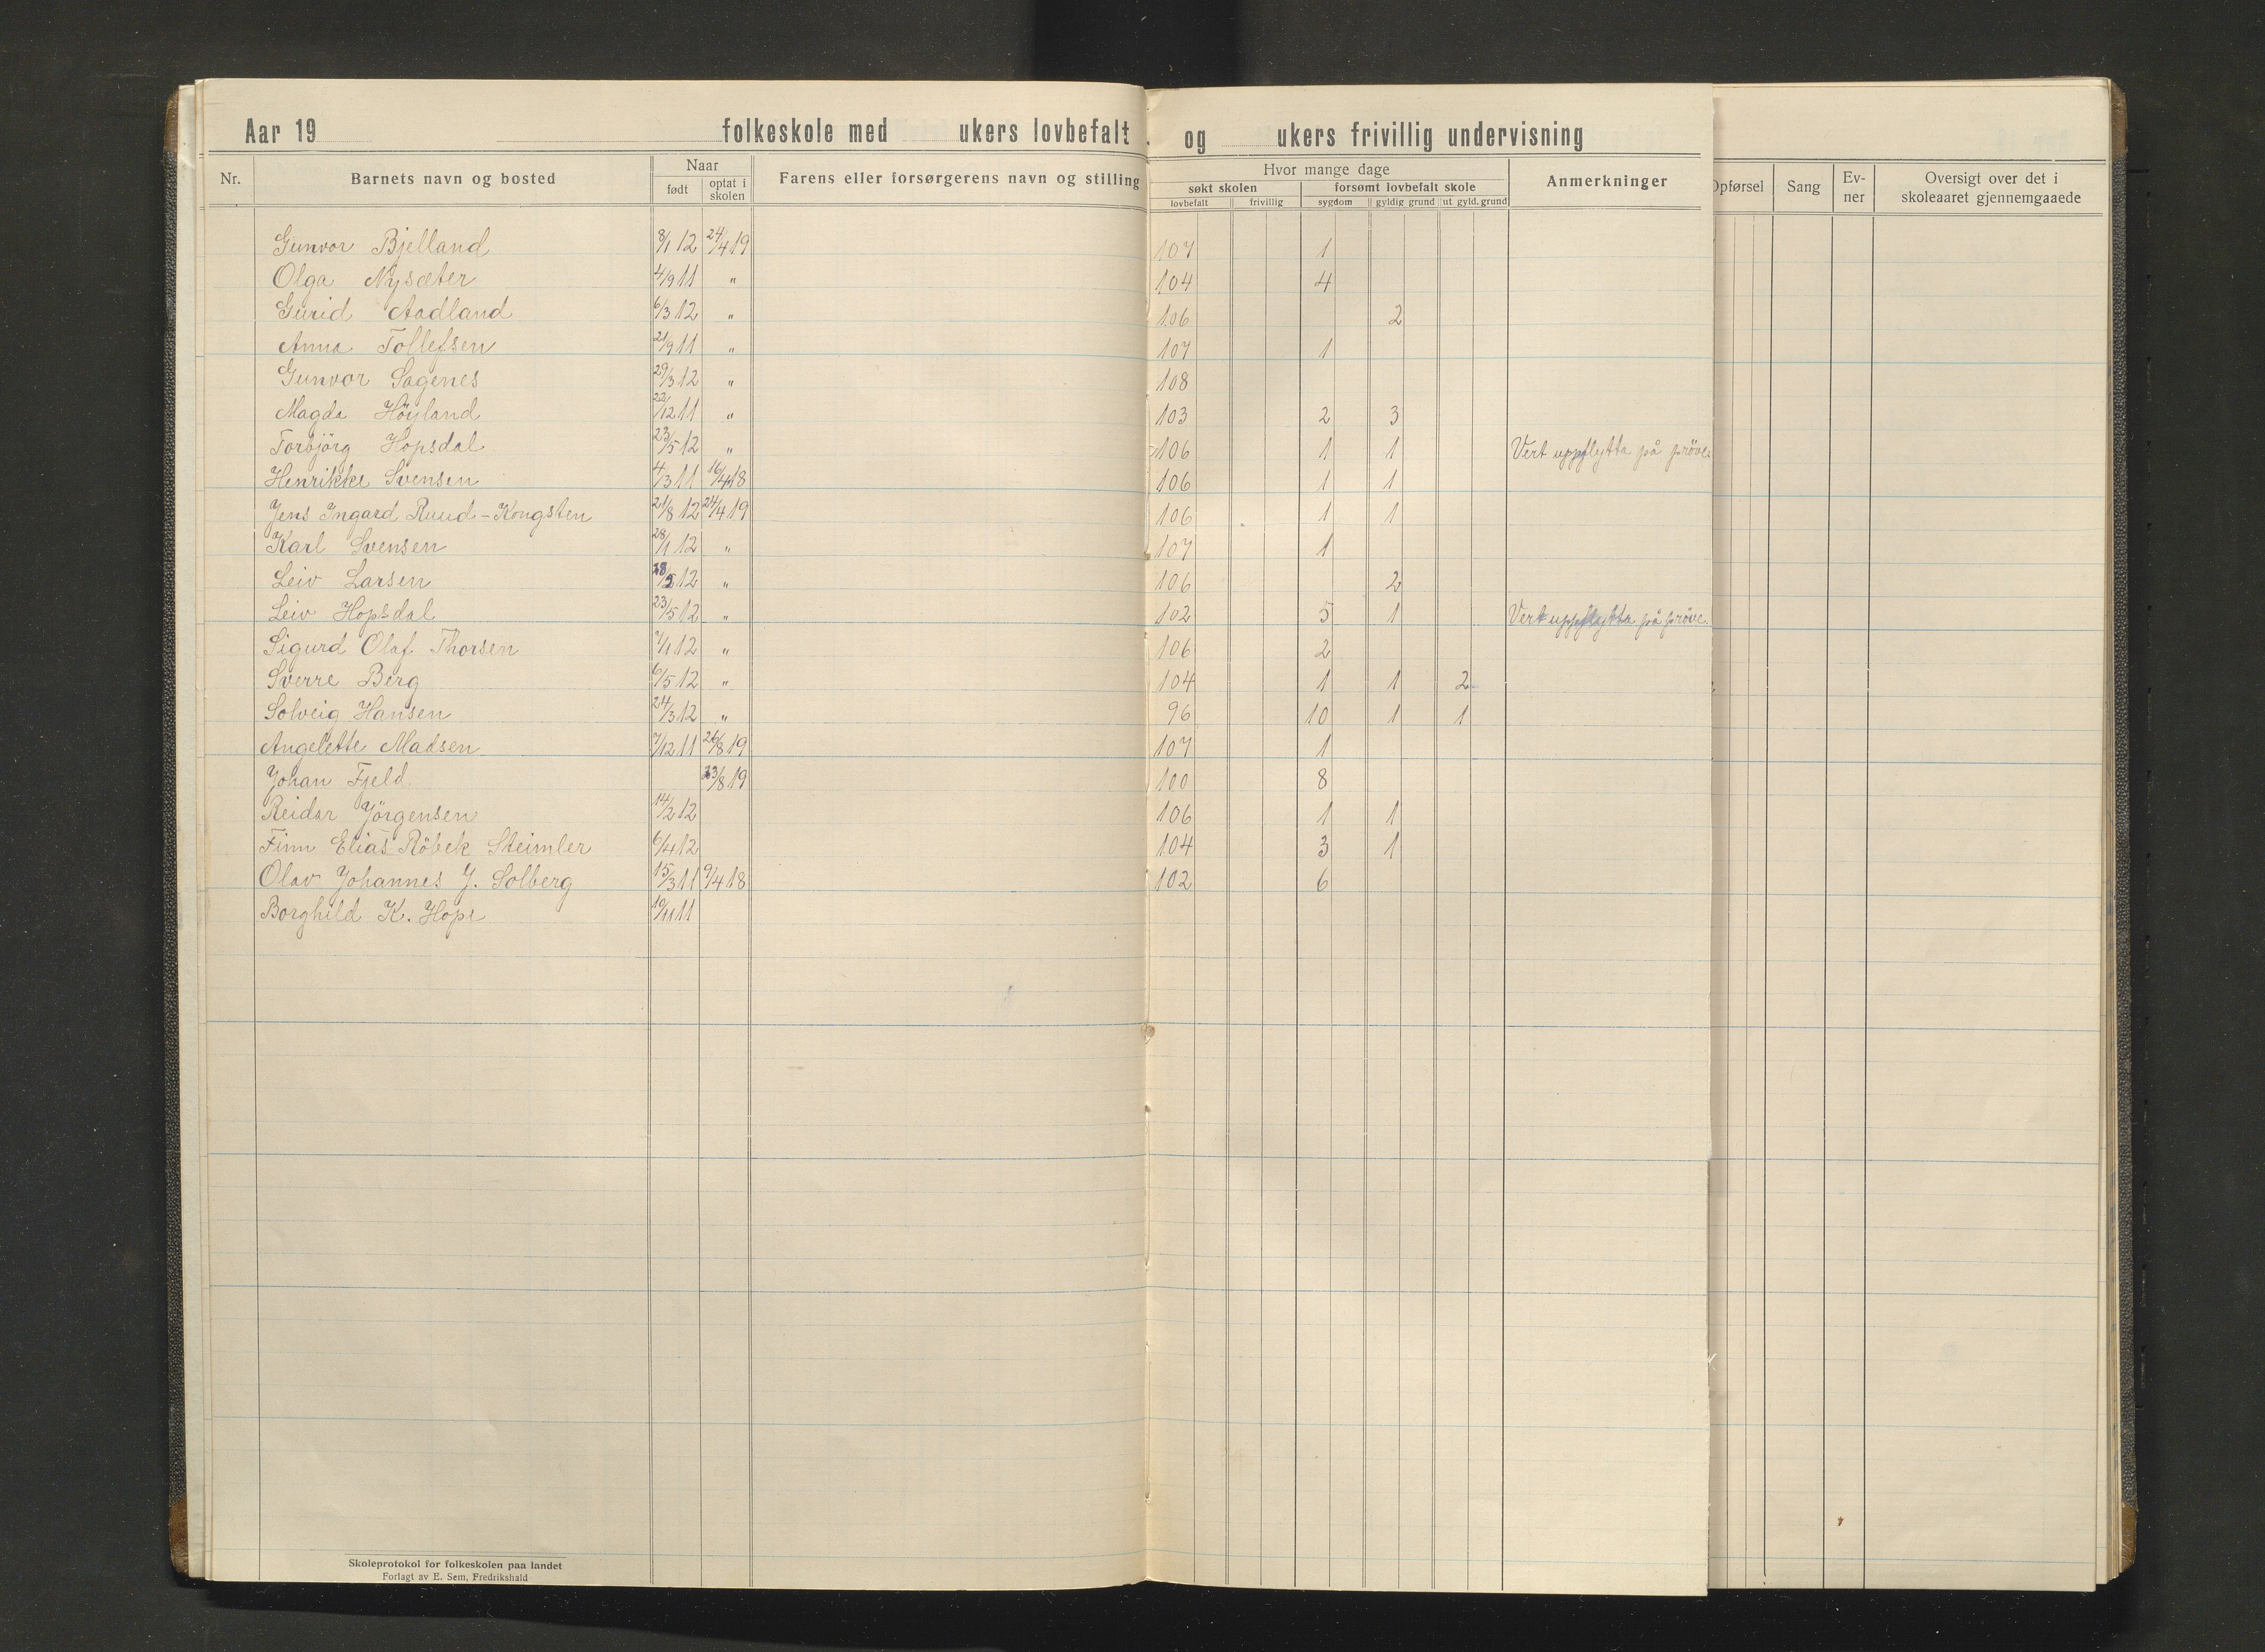 Aar 19 folkeskole med ukers lovbefalt og ukers frivillig undervisning
Nr. Barnets navn og bosted Naar født optat i skolen Farens eller forsørgerens navn og stilling Hvor mange dage søkt skolen lovbefalt frivillig forsømt lovbefalt skole sygdom gyldig grund ut gyld. grund Anmerkninger Opførsel Sang Ev-ner Oversigt over det i skoleaaret gjennemgaaede
Gunvor Bjelland 8/1 12 24/4 19 107 1
Olga Nysæter 4/9 11 " 104 4
Gurid Aadland 6/3 12 " 106 2
Anna Tollefsen 21/9 11 " 107 1
Gunvor Sagenes 29/3 12 " 108
Magda Höyland 22/12 11 " 103 2 3
Torbjörg Hopsdal 23/5 12 " 106 1 1 Vert uppflytta på pröve.
Henrikke Svensen 4/3 11 16/4 18 106 1 1
Jens Ingard Ruud-Kongsten 21/8 12 24/4 19 106 1 1
Karl Svensen 28/1 12 " 107 1
Leiv Larsen 12 " 106 2
Leiv Hopsdal 23/5 12 " 102 5 1 Vert uppflytta på pröve.
Sigurd Olaf Thorsen 7/1 12 " 106 2
Sverre Berg 6/5 12 " 104 1 1 2
Solveig Hansen 24/3 12 " 96 10 1 1
Angelette Madsen 7/12 11 26/8 19 107 1
Johan Fjeld 23/8 19 100 8
Reidar Jörgensen 14/2 12 106 1 1
Finn Elias Röbek Steimler 6/4 12 104 3 1
Olav Johannes J. Solberg 15/3 11 9/4 18 102 6
Borghild K. Hope 19/11 11
Skoleprotokol for folkeskolen paa landet
Forlagt av E. Sem, Fredrikshald